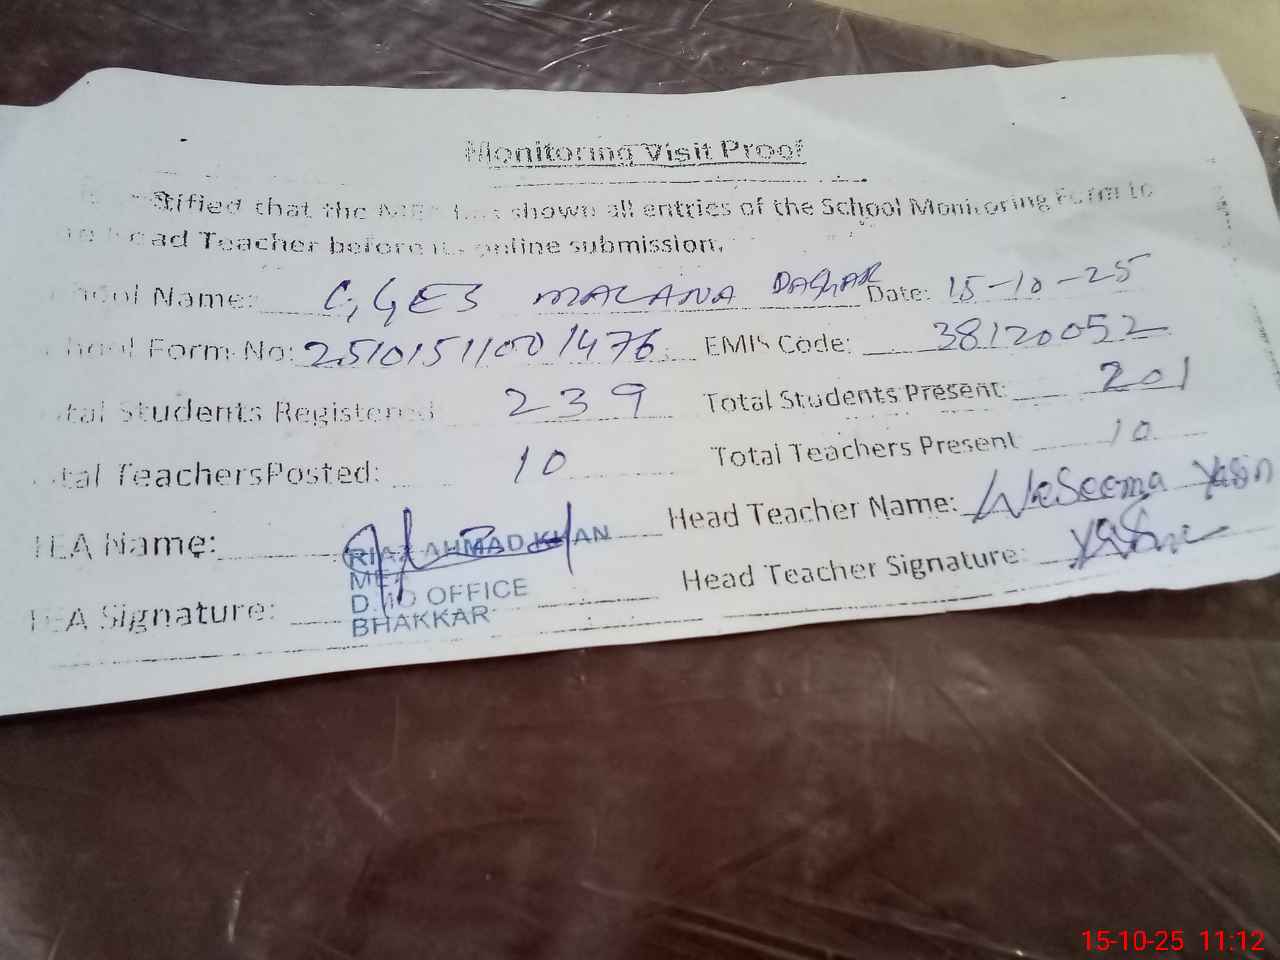 Monitoring Visit Proof
that the has shown all entries of the School Monitoring Form to
Head Teacher before its online submission.
School Name: GGES MALANA DAGGAR Date: 15-10-25
School Form No: 25101511001476 EMIS Code: 38120052
Total Students Registered 239 Total Students Present: 201
Total TeachersPosted: 10 Total Teachers Present 10
MEA Name: RIAZ AHMAD KHAN Head Teacher Name: WaSeema Yasin
MEA
MEA Signature: D.M.O OFFICE Head Teacher Signature:
BHAKKAR
15-10-25 11:12